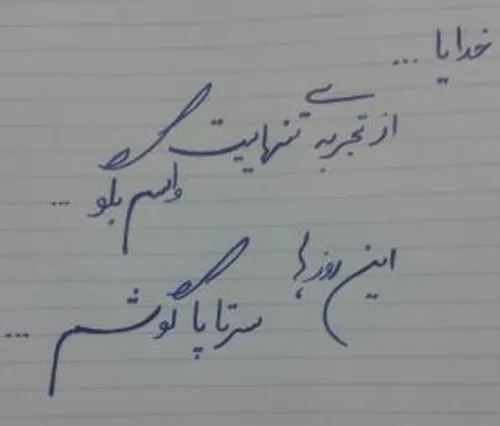 خدایا ...
از تجربه ی تنهاییت
واسم بگو ...
این روزها
سرتا پا گوشم ...